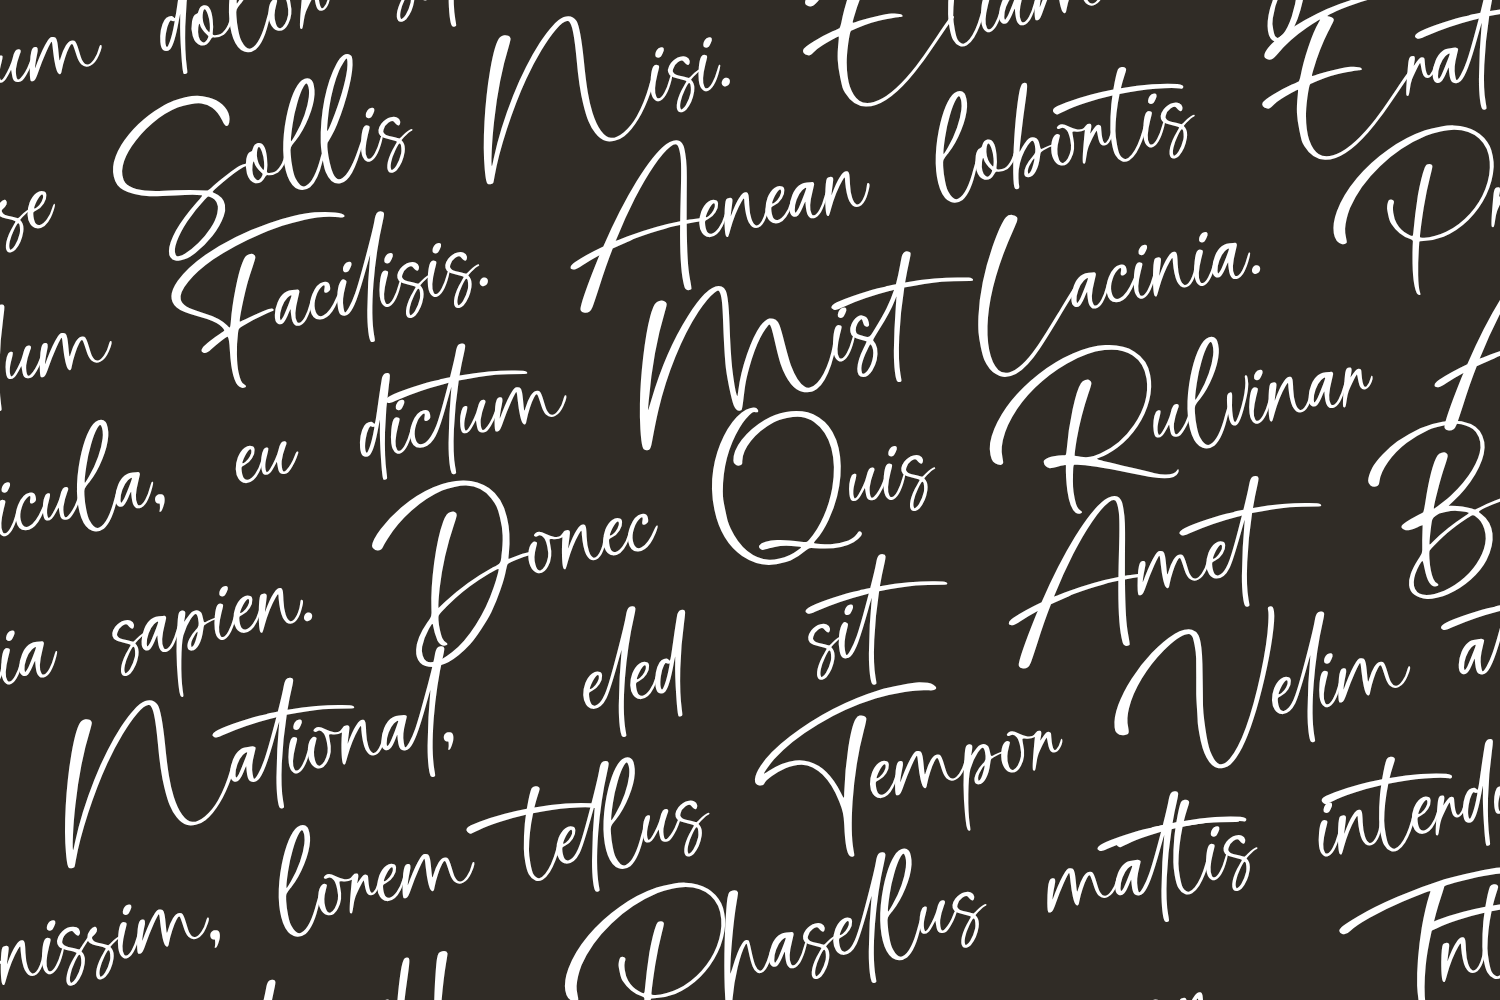 um dolor
se Sollis Nisi. Etiam
lum Facilisis. Aenean lobortis Erat
icula, eu dictum Mist Lacinia.
ia sapien. Donec Quis Rulvinar
National, eled sit Amet
nissim, lorem tellus Tempor Velim
Phasellus mattis